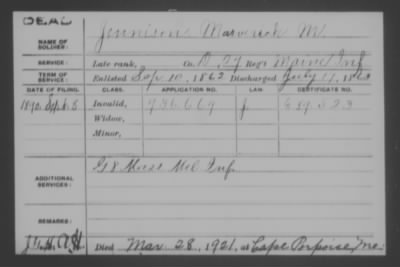 DEAD
NAME OF SOLDIER: Jennison, Maverick M.
SERVICE: Late rank, Co. D, 27 Reg't Maine Inf
TERM OF SERVICE: Enlisted Sep. 10, 1862 Discharged July 17, 1863
DATE OF FILING. CLASS. APPLICATION NO. LAW. CERTIFICATE NO.
1890 Sept. 8 Invalid, 936669 J 659523
Widow,
Minor,
ADDITIONAL SERVICES: G 8 Mass Mil Inf.
REMARKS:
Died Mar. 28, 1921, at Cape Porpoise, Me.